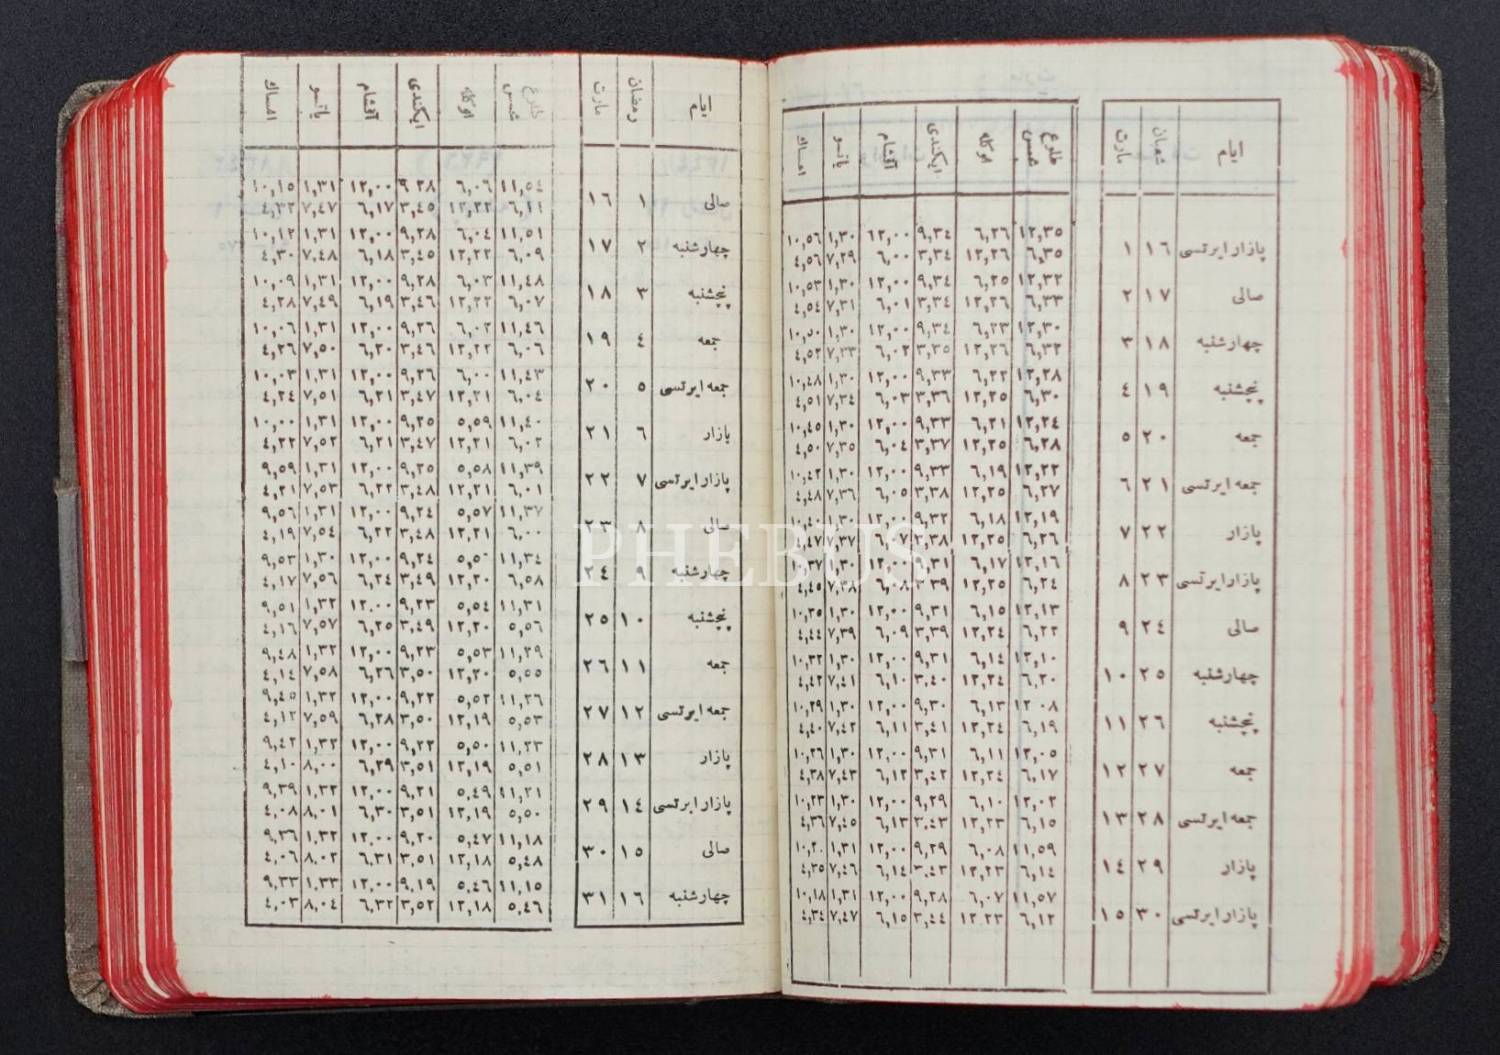 ايام شعبان مارت طلوع شمس اوكله ايكندى آقشام ياتسو امساك
پازار ايرتسى ١٦ ١ ١٢,٣٥ ٦,٢٦ ٩,٣٤ ١٢,٠٠ ١,٣٠ ١٠,٥٦
٦,٣٥ ١٢,٢٦ ٣,٣٤ ٦,٠٠ ٧,٢٩ ٤,٥٦
صالى ١٧ ٢ ١٢,٣٢ ٦,٢٥ ٩,٣٤ ١٢,٠٠ ١,٣٠ ١٠,٥٣
٦,٣٣ ١٢,٢٦ ٣,٣٤ ٦,٠١ ٧,٣١ ٤,٥٤
چهارشنبه ١٨ ٣ ١٢,٣٠ ٦,٢٣ ٩,٣٤ ١٢,٠٠ ١,٣٠ ١٠,٥٠
٦,٣٢ ١٢,٢٦ ٣,٣٥ ٦,٠٢ ٧,٣٣ ٤,٥٢
پنچشنبه ١٩ ٤ ١٢,٢٨ ٦,٢٢ ٩,٣٣ ١٢,٠٠ ١,٣٠ ١٠,٤٨
٦,٣٠ ١٢,٢٥ ٣,٣٦ ٦,٠٣ ٧,٣٤ ٤,٥١
جمعه ٢٠ ٥ ١٢,٢٤ ٦,٢١ ٩,٣٣ ١٢,٠٠ ١,٣٠ ١٠,٤٥
٦,٢٨ ١٢,٢٥ ٣,٣٧ ٦,٠٤ ٧,٣٥ ٤,٥٠
جمعه ايرتسى ٢١ ٦ ١٢,٢٢ ٦,١٩ ٩,٣٣ ١٢,٠٠ ١,٣٠ ١٠,٤٢
٦,٢٧ ١٢,٢٥ ٣,٣٨ ٦,٠٥ ٧,٣٦ ٤,٤٨
پازار ٢٢ ٧ ١٢,١٩ ٦,١٨ ٩,٣٢ ١٢,٠٠ ١,٣٠ ١٠,٤٠
٦,٢٦ ١٢,٢٥ ٣,٣٨ ٦,٠٧ ٧,٣٧ ٤,٤٧
پازار ايرتسى ٢٣ ٨ ١٢,١٦ ٦,١٧ ٩,٣١ ١٢,٠٠ ١,٣٠ ١٠,٣٧
٦,٢٤ ١٢,٢٥ ٣,٣٩ ٦,٠٨ ٧,٣٨ ٤,٤٥
صالى ٢٤ ٩ ١٢,١٣ ٦,١٥ ٩,٣١ ١٢,٠٠ ١,٣٠ ١٠,٣٥
٦,٢٢ ١٢,٢٤ ٣,٣٩ ٦,٠٩ ٧,٣٩ ٤,٤٤
چهارشنبه ٢٥ ١٠ ١٢,١٠ ٦,١٤ ٩,٣١ ١٢,٠٠ ١,٣٠ ١٠,٣٢
٦,٢٠ ١٢,٢٤ ٣,٤٠ ٦,١٠ ٧,٤١ ٤,٤٢
پنچشنبه ٢٦ ١١ ١٢٠٨ ٦,١٣ ٩,٣٠ ١٢,٠٠ ١,٣٠ ١٠,٢٩
٦,١٩ ١٢,٢٤ ٣,٤١ ٦,١١ ٧,٤٢ ٤,٤٠
جمعه ٢٧ ١٢ ١٢,٠٥ ٦,١١ ٩,٣١ ١٢,٠٠ ١,٣٠ ١٠,٢٦
٦,١٧ ١٢,٢٤ ٣,٤٢ ٦,١٢ ٧,٤٣ ٤,٣٨
جمعه ايرتسى ٢٨ ١٣ ١٢,٠٢ ٦,١٠ ٩,٢٩ ١٢,٠٠ ١,٣٠ ١٠,٢٣
٦,١٥ ١٢,٢٣ ٣,٤٣ ٦,١٣ ٧,٤٥ ٤,٣٦
پازار ٢٩ ١٤ ١١,٥٩ ٦,٠٨ ٩,٢٩ ١٢,٠٠ ١,٣١ ١٠,٢٠
٦,١٤ ١٢,٢٣ ٣,٤٣ ٦,١٤ ٧,٤٦ ٤,٣٥
پازار ايرتسى ٣٠ ١٥ ١١,٥٧ ٦,٠٧ ٩,٢٨ ١٢,٠٠ ١,٣١ ١٠,١٨
٦,١٢ ١٢,٢٣ ٣,٤٤ ٦,١٥ ٧,٤٧ ٤,٣٤
ايام رمضان مارت طلوع شمس اوكله ايكندى آقشام ياتسو امساك
صالى ١ ١٦ ١١,٥٤ ٦,٠٦ ٩,٢٨ ١٢,٠٠ ١,٣١ ١٠,١٥
٦,١١ ١٢,٢٢ ٣,٤٥ ٦,١٧ ٧,٤٧ ٤,٣٢
چهارشنبه ٢ ١٧ ١١,٥١ ٦,٠٤ ٩,٢٨ ١٢,٠٠ ١,٣١ ١٠,١٢
٦,٠٩ ١٢,٢٢ ٣,٤٥ ٦,١٨ ٧,٤٨ ٤,٣٠
پنچشنبه ٣ ١٨ ١١,٤٨ ٦,٠٣ ٩,٢٨ ١٢,٠٠ ١,٣١ ١٠,٠٩
٦,٠٧ ١٢,٢٢ ٣,٤٦ ٦,١٩ ٧,٤٩ ٤,٢٨
جمعه ٤ ١٩ ١١,٤٦ ٦,٠٢ ٩,٢٦ ١٢,٠٠ ١,٣١ ١٠,٠٦
٦,٠٦ ١٢,٢٢ ٣,٤٦ ٦,٢٠ ٧,٥٠ ٤,٢٦
جمعه ايرتسى ٥ ٢٠ ١١,٤٣ ٦,٠٠ ٩,٢٦ ١٢,٠٠ ١,٣١ ١٠,٠٣
٦,٠٤ ١٢,٢١ ٣,٤٧ ٦,٢١ ٧,٥١ ٤,٢٤
پازار ٦ ٢١ ١١,٤٠ ٥,٥٩ ٩,٢٥ ١٢,٠٠ ١,٣١ ١٠,٠٠
٦,٠٢ ١٢,٢١ ٣,٤٧ ٦,٢١ ٧,٥٢ ٤,٢٢
پازار ايرتسى ٧ ٢٢ ١١,٣٩ ٥,٥٨ ٩,٢٥ ١٢,٠٠ ١,٣١ ٩,٥٩
٦,٠١ ١٢,٢١ ٣,٤٨ ٦,٢٢ ٧,٥٣ ٤,٢١
صالى ٨ ٢٣ ١١,٣٧ ٥,٥٧ ٩,٢٤ ١٢,٠٠ ١,٣١ ٩,٥٦
٦,٠٠ ١٢,٢١ ٣,٤٨ ٦,٢٢ ٧,٥٤ ٤,١٩
چهارشنبه ٩ ٢٤ ١١,٣٤ ٩,٢٤ ١٢,٠٠ ١,٣٠ ٩,٥٣
٦,٥٨ ١٢,٢٠ ٣,٤٩ ٦,٢٤ ٧,٥٦ ٤,١٧
پنچشنبه ١٠ ٢٥ ١١,٣١ ٥,٥٤ ٩,٢٣ ١٢,٠٠ ١,٣٢ ٩,٥١
٥,٥٦ ١٢,٢٠ ٣,٤٩ ٦,٢٥ ٧,٥٧ ٤,١٦
جمعه ١١ ٢٦ ١١,٢٩ ٥,٥٣ ٩,٢٣ ١٢,٠٠ ١,٣٢ ٩,٤٨
٥,٥٥ ١٢,٢٠ ٣,٥٠ ٦,٢٦ ٧,٥٨ ٤,١٤
جمعه ايرتسى ١٢ ٢٧ ١١,٢٦ ٥,٥٢ ٩,٢٢ ١٢,٠٠ ١,٣٢ ٩,٤٥
٥,٥٣ ١٢,١٩ ٣,٥٠ ٦,٢٨ ٧,٥٩ ٤,١٢
پازار ١٣ ٢٨ ١١,٢٣ ٥,٥٠ ٩,٢٢ ١٢,٠٠ ١,٣٢ ٩,٤٢
٥,٥١ ١٢,١٩ ٣,٥١ ٦,٢٩ ٨,٠٠ ٤,١٠
پازار ايرتسى ١٤ ٢٩ ١١,٢١ ٥,٤٩ ٩,٢١ ١٢,٠٠ ١,٣٢ ٩,٣٩
٥,٥٠ ١٢,١٩ ٣,٥١ ٦,٣٠ ٨,٠١ ٤,٠٨
صالى ١٥ ٣٠ ١١,١٨ ٥,٤٧ ٩,٢٠ ١٢,٠٠ ١,٣٢ ٩,٣٦
٥,٤٨ ١٢,١٨ ٣,٥١ ٦,٣١ ٨,٠٢ ٤,٠٦
چهارشنبه ١٦ ٣١ ١١,١٥ ٥,٤٦ ٩,١٩ ١٢,٠٠ ١,٣٣ ٩,٣٣
٥,٤٦ ١٢,١٨ ٣,٥٢ ٦,٣٢ ٨,٠٤ ٤,٠٣
PHEBUS